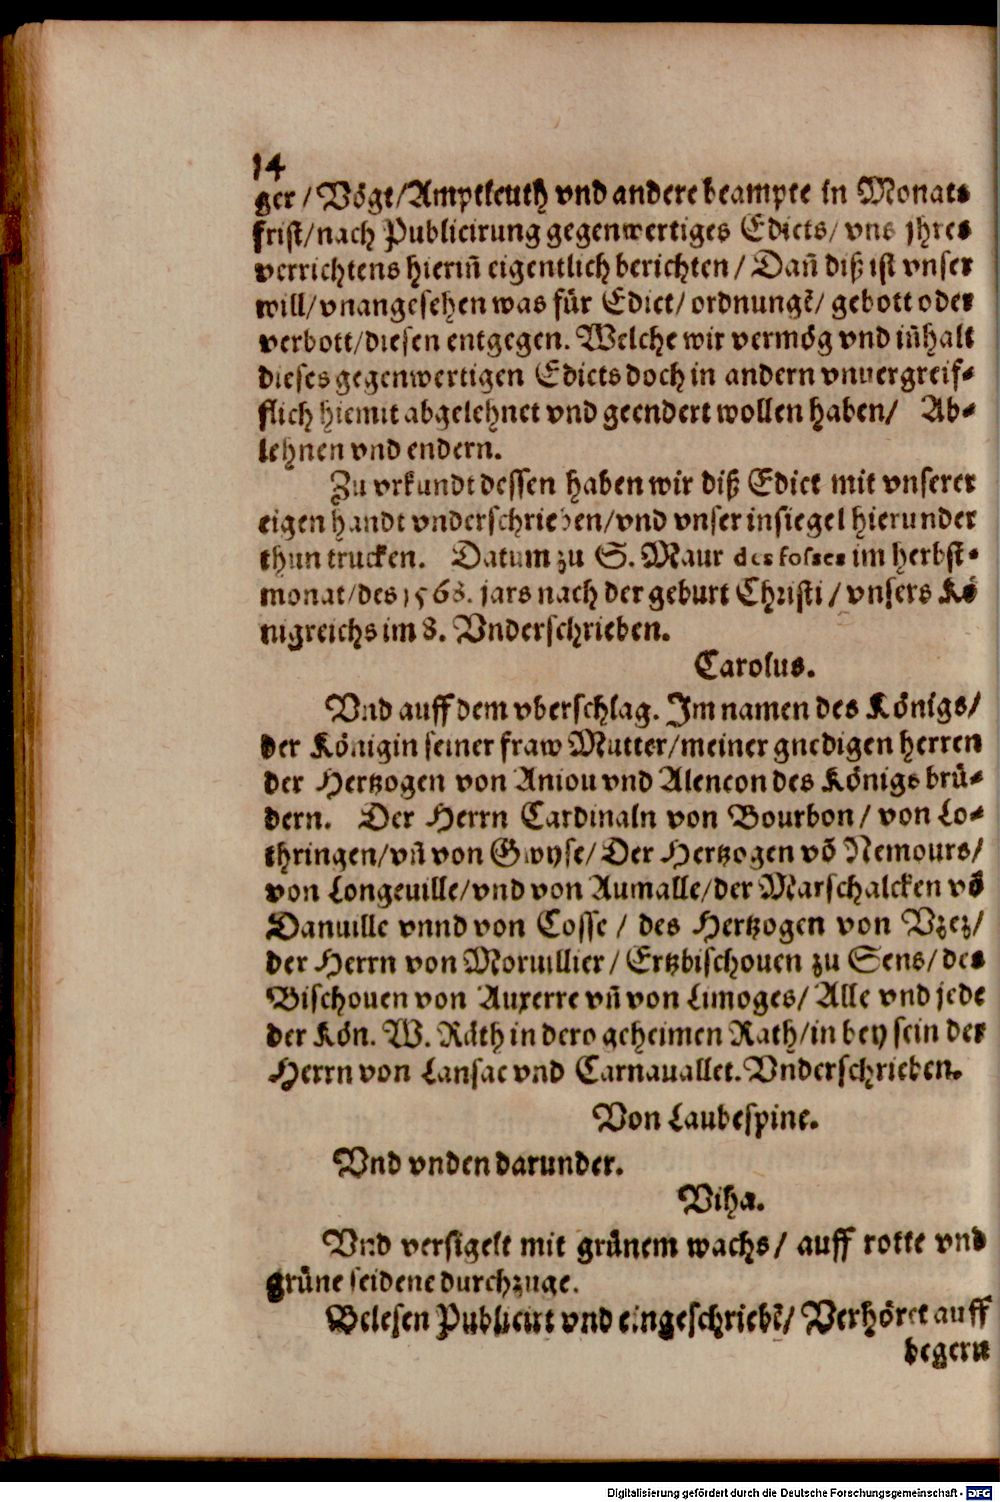 14
ger / Vögt/Amptleuth vnd andere beampte in Monats
frist/nach Publicirung gegenwertiges Edicts/ vns jhres
verrichtens hieriñ eigentlich berichten / Dañ diß ist vnser
will/vnangesehen was für Edict/ ordnungẽ/ gebott oder
verbott/diesen entgegen. Welche wir vermög vnd iñhalt
dieses gegenwertigen Edicts doch in andern vnuergreif-
flich hiemit abgelehnet vnd geendert wollen haben/ Ab-
lehnen vnd endern.
Zu vrkundt dessen haben wir diß Edict mit vnserer
eigen handt vnderschrieben/vnd vnser insiegel hierunder
thun trucken. Datum zu S. Maur des fosses im herbst-
monat/des 1568. jars nach der geburt Christi / vnsers Kö
nigreichs im 8. Vnderschrieben.
Carolus.
Vnd auff dem vberschlag. Im namen des Königs/
der Königin seiner fraw Mutter/meiner gnedigen herren
der Hertzogen von Aniou vnd Alencon des Königs brü-
dern. Der Herrn Cardinaln von Bourbon / von Lo-
thringen/vñ von Gwyse/ Der Hertzogen võ Nemours/
von Longeuille/vnd von Aumalle/der Marschalcken võ
Danuille vnnd von Cosse / des Hertzogen von Vzez/
der Herrn von Moruillier / Ertzbischouen zu Sens/ des
Bischouen von Auxerre vñ von Limoges/ Alle vnd jede
der Kön. W. Räth in dero geheimen Rath/in bey sein der
Herrn von Lansac vnd Carnauallet. Vnderschrieben.
Von Laubespine.
Vnd vnden darunder.
Viha.
Vnd versigelt mit grünem wachs/ auff rotte vnd
grüne seidene durchzuge.
Gelesen Publicirt vnd eingeschriebẽ/ Verhöret auff
begern
Digitalisierung gefördert durch die Deutsche Forschungsgemeinschaft - DFG